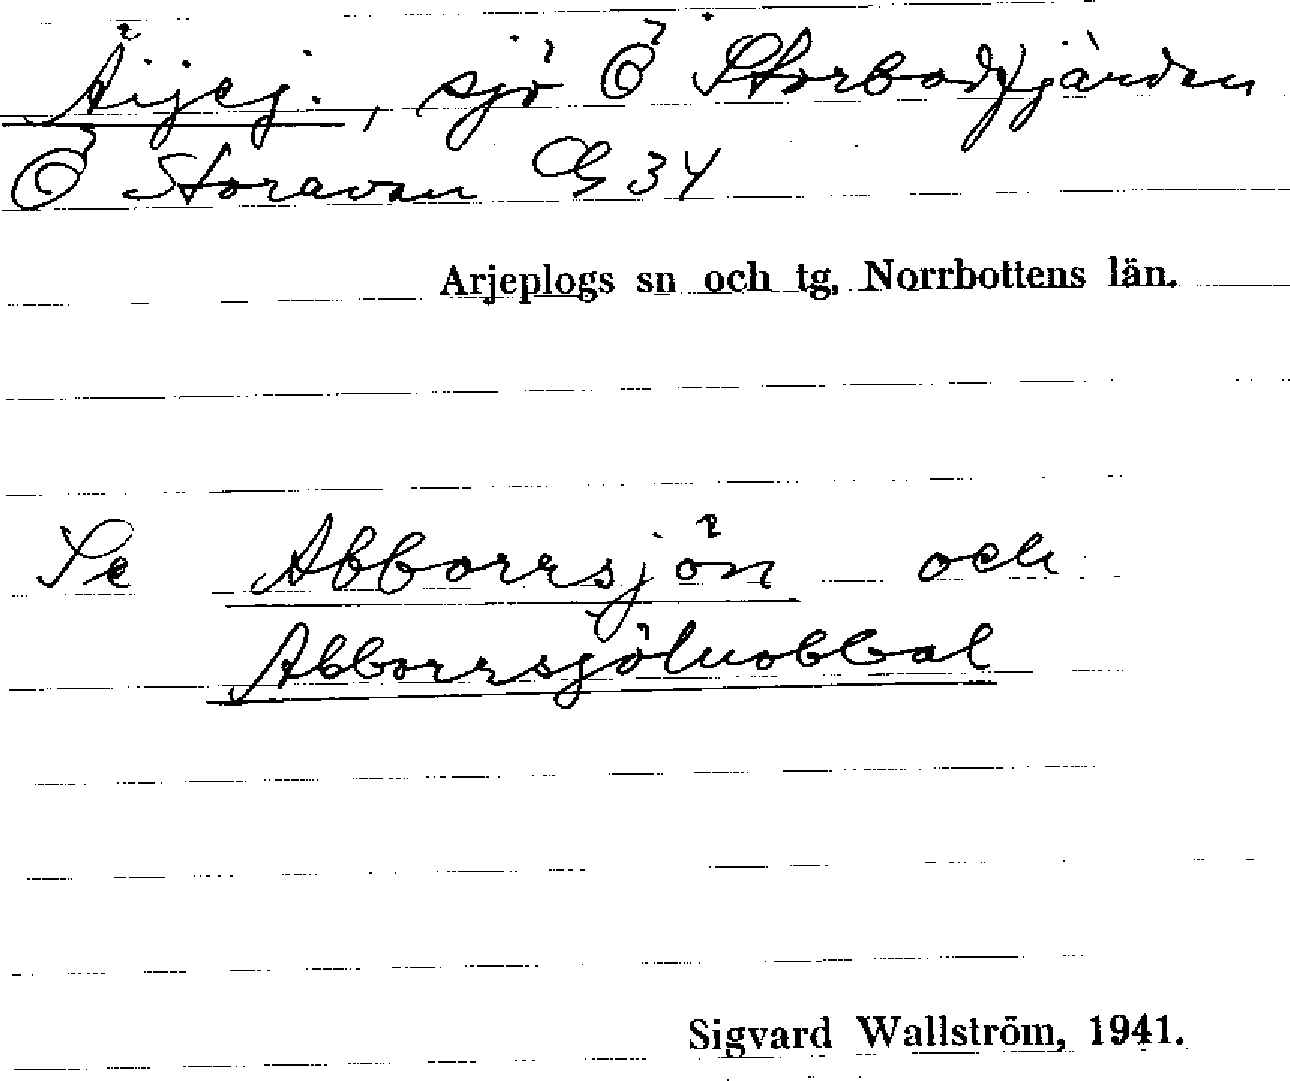 Äijej., sjö Ö Storbodfjärden
Ö Storavan G 34
Arjeplogs sn och tg, Norrbottens län.
Se Abborrsjön och
Abborrsjöluobbal
Sigvard Wallström, 1941.